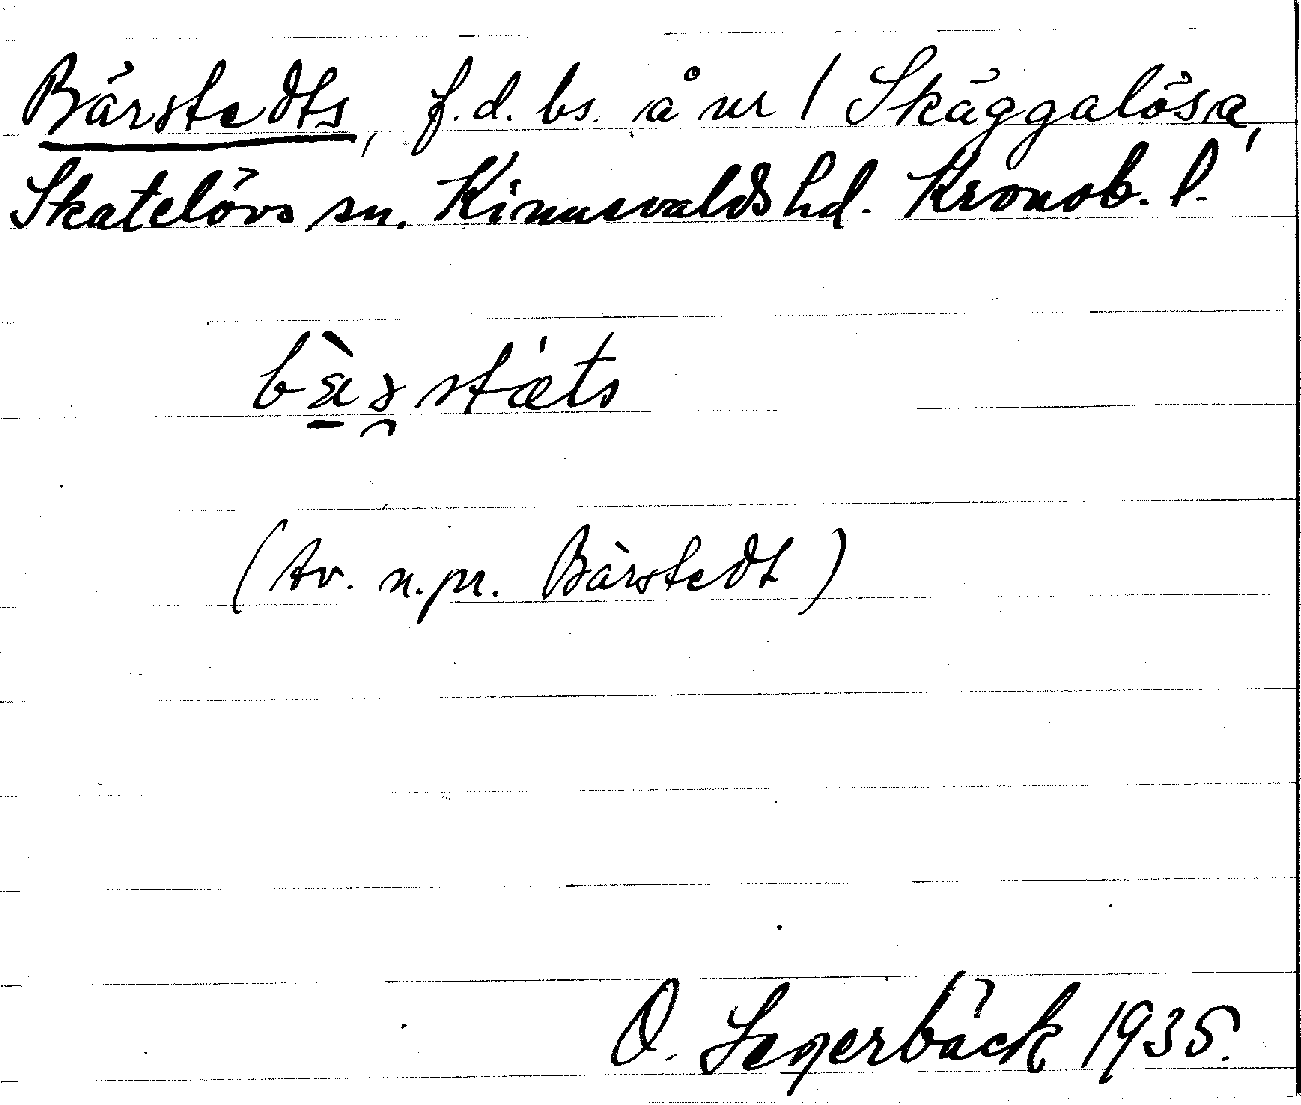 Bärstedts, f.d. bs. å nr 1 Skäggalösa,
Skatelövs sn. Kinnevalds hd. Kronob. l.
stæts
(Av. n.pr. Bärstedt)
O. Segerbäck 1935.